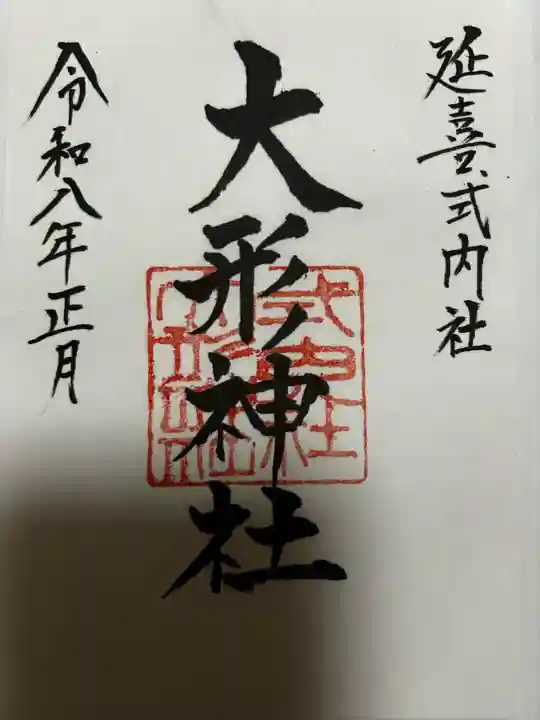 延喜式内社
大形神社
式内社
令和八年正月